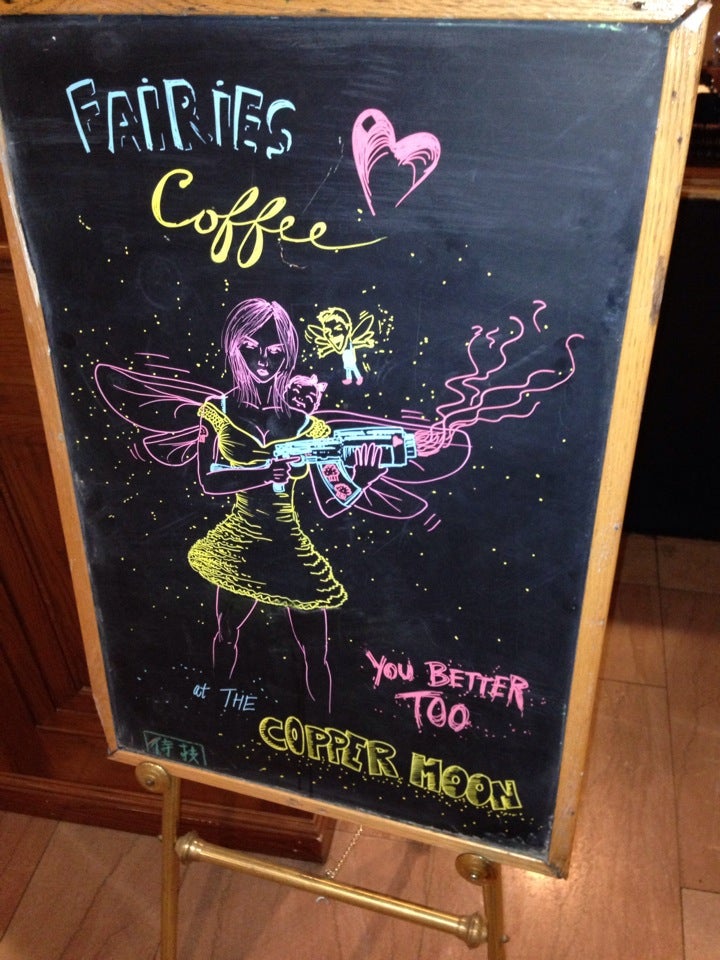 FAIRIES
Coffee
YOU BETTER
TOO
at THE
COPPER MOON